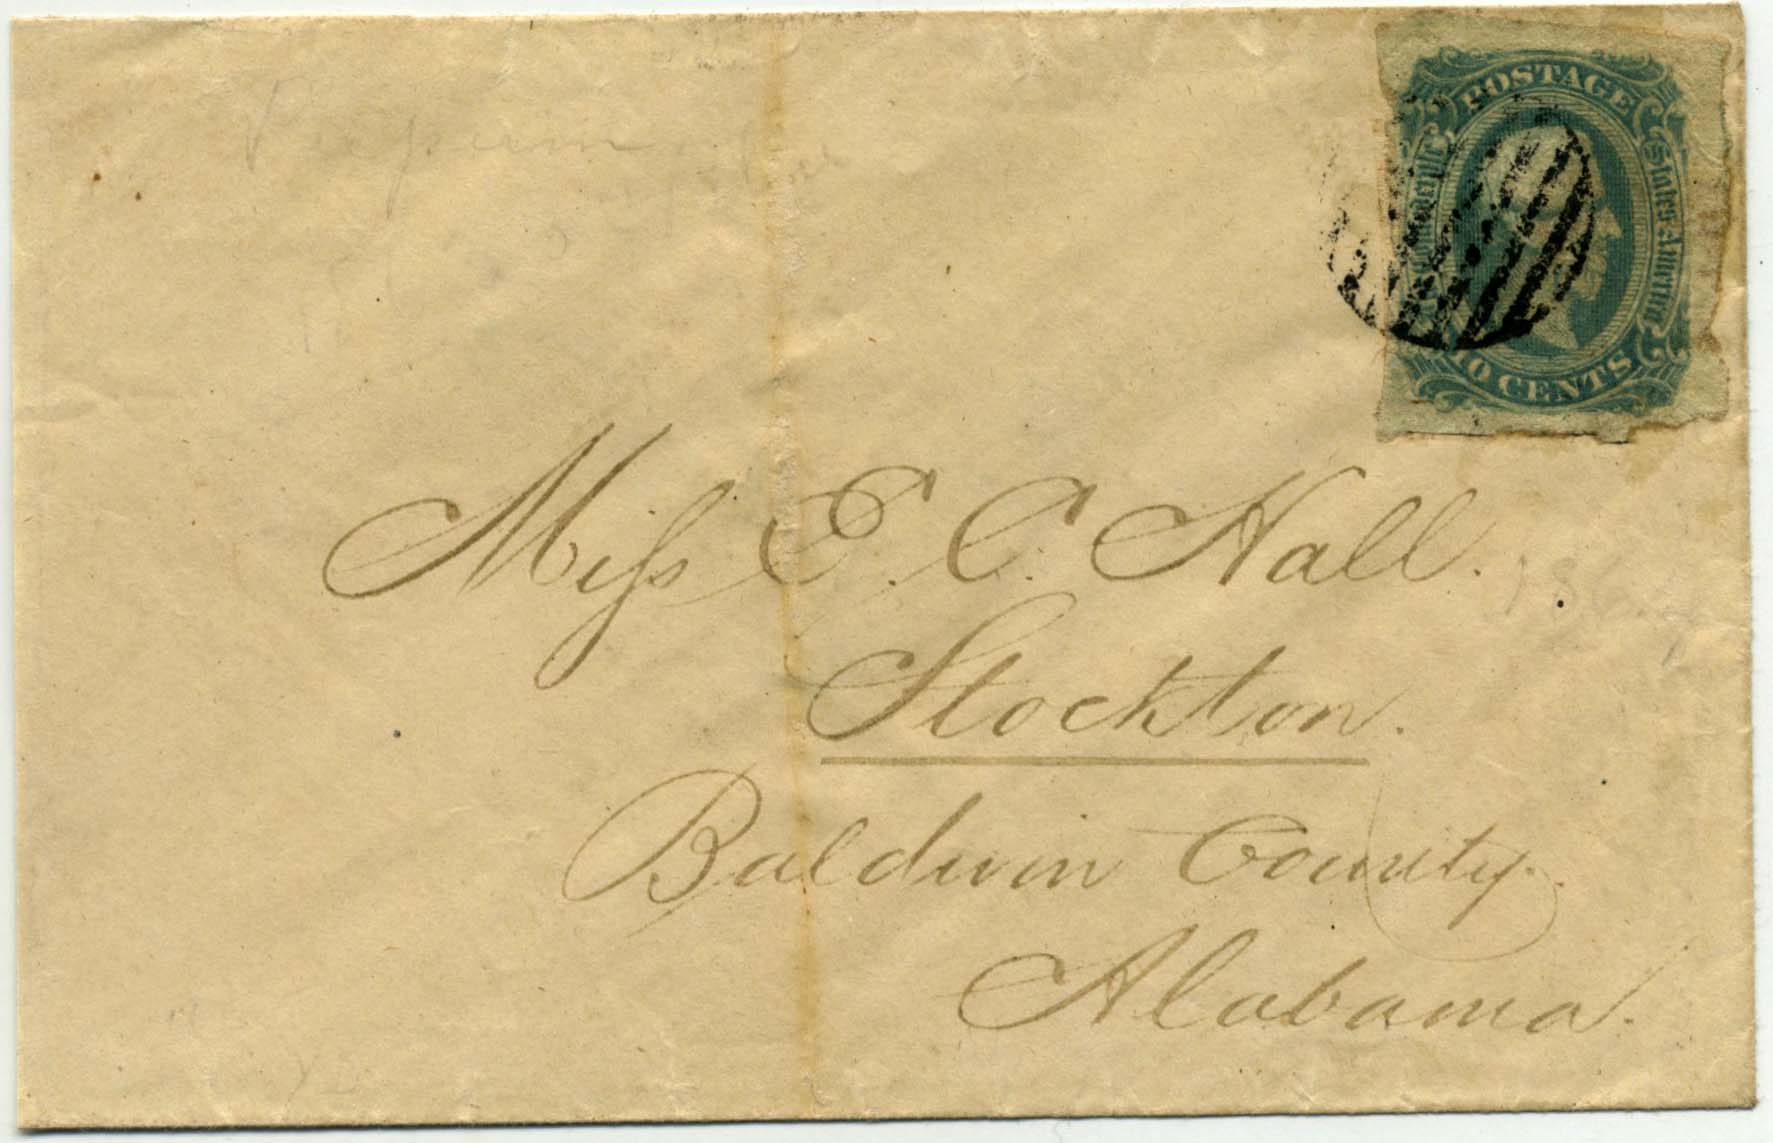 POSTAGE
Confederate
States America
10 CENTS
Miss E. C. Hall.
Stockton.
Baldwin County.
Alabama.